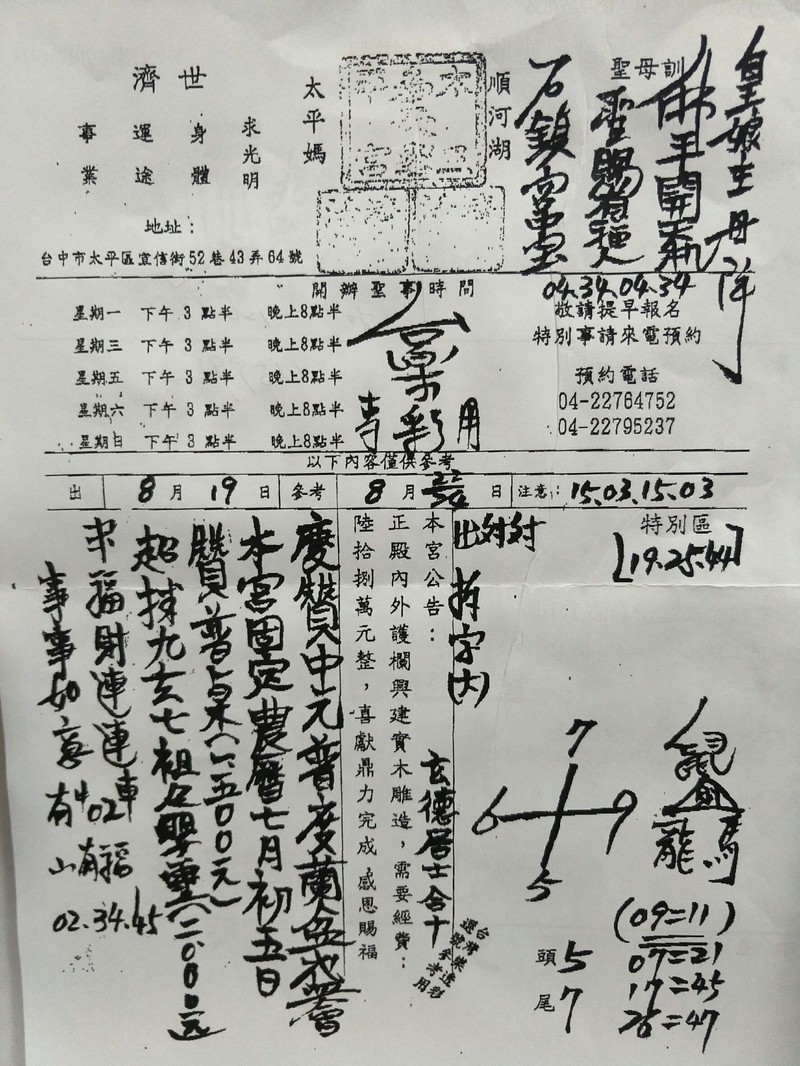 皇娘主母降
聖母訓
佛王開
聖賜有理
石鎮富
04.34.04.34
順河湖
太平媽
濟世
求光明
身體
運途
事業
地址：
台中市太平區宜信街52巷43弄64號
開辦聖事時間
星期一 下午3點半 晚上8點半
星期三 下午3點半 晚上8點半
星期五 下午3點半 晚上8點半
星期六 下午3點半 晚上8點半
星期日 下午3點半 晚上8點半
敬請提早報名
特別事請來電預約
預約電話
04-22764752
04-22795237
彩用
以下內容僅供參考
出 8月19日 參考 8月 日 注意：15.03.15.03
特別區
[19.25.44]
出对对
拆字(六)
7
6 9
5
鼠
龍馬
(09=11)
07=21
17=45
26=47
頭5
尾7
本宮公告：
正殿內外護欄興建實木雕造，需要經費：
陸拾捌萬元整，喜獻鼎力完成 感恩賜福
玄德居士合十
台灣樂透彩
選號參考用
慶贊中元普度蘭盆法會
本宮固定農曆七月初五日
贊普桌(一五００元)
超拔九玄七祖嬰靈(二０００元)
求福財連連
事事如意
有402車
山有福
02.34.45